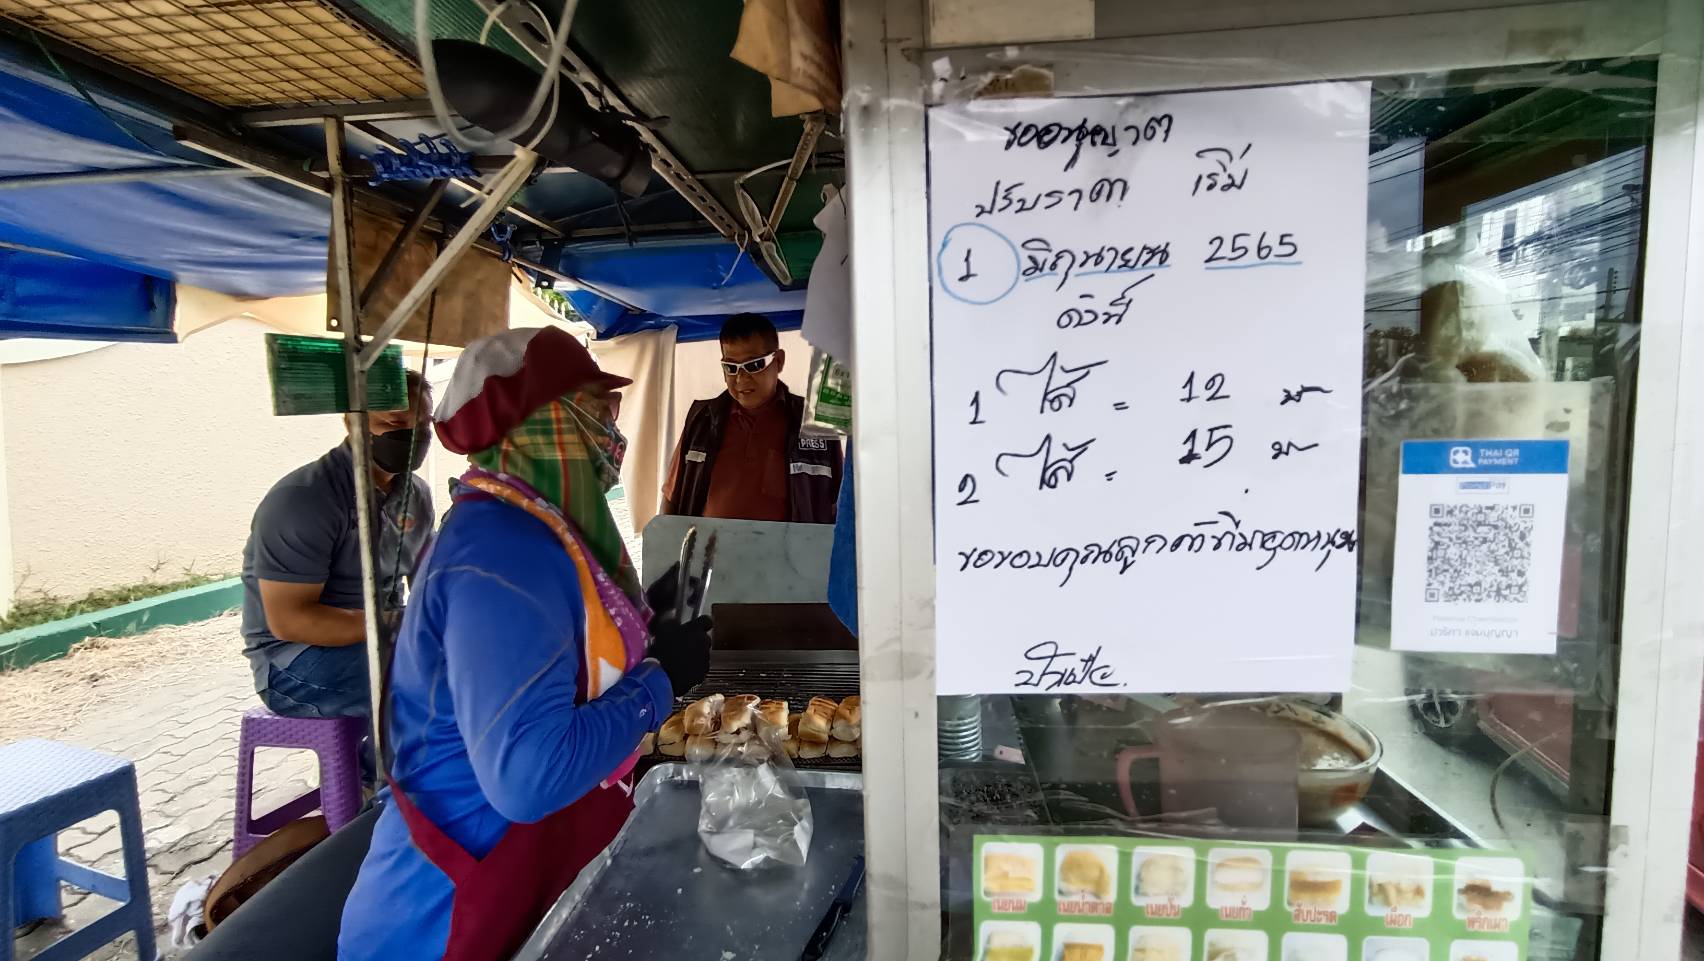 ขออนุญาต
ปรับราคา เริ่ม
1 มิถุนายน 2565
ดังนี้
1 ไส้ = 12 บ
2 ไส้ = 15 บ
ขอขอบคุณลูกค้าที่มาอุดหนุน
ป้าเปีย.
THAI QR
PAYMENT
ปวริศา แจ่มบุญญา
PRESS
เนยนม
เนยน้ำตาล
เนยปั่น
เนยถั่ว
สับปะรด
เผือก
พริกเผา